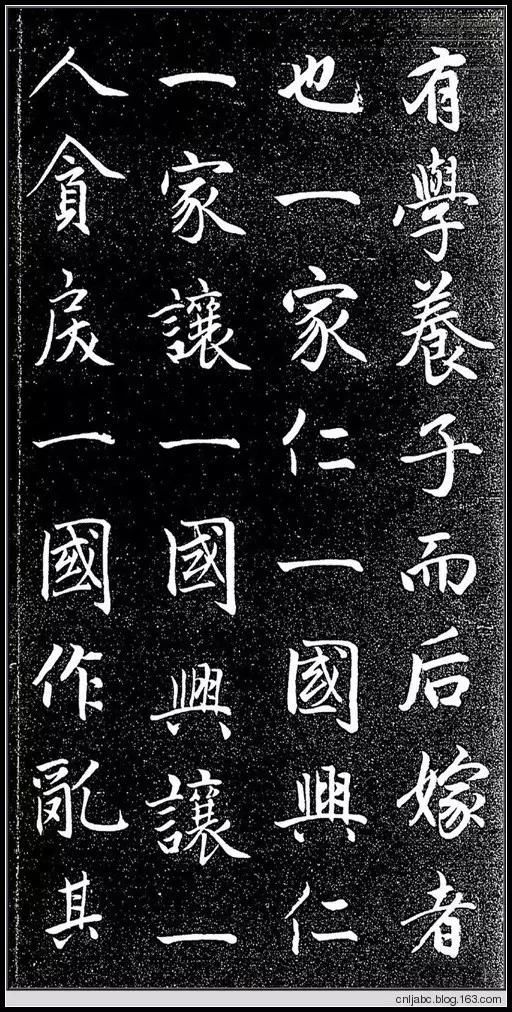 有學養子而后嫁者
也一家仁一國興仁
一家讓一國興讓一
人貪戾一國作亂其
cnljabc.blog.163.com